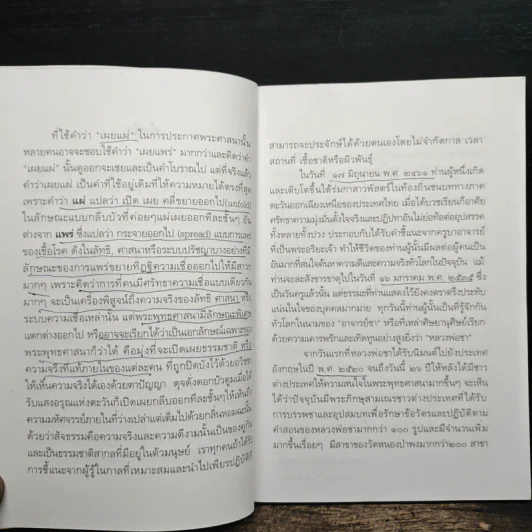 ที่ใช้คำว่า "เผยแผ่" ในการประกาศพระศาสนานั้น
หลายคนอาจจะชอบใช้คำว่า "เผยแพร่" มากกว่าและคิดว่าคำ
"เผยแผ่" นั้นดูออกจะเชยและเป็นคำโบราณไป แต่ที่จริงแล้ว
คำว่าเผยแผ่ เป็นคำที่ใช้อยู่เดิมที่ให้ความหมายได้ตรงที่สุด
เพราะคำว่า แผ่ แปลว่า เปิด เผย คลี่ขยายออกไป (unfold)
ในลักษณะแบบกลีบบัวที่ค่อยๆแผ่เผยออกทีละชั้นๆ
ต่างจาก แพร่ ซึ่งแปลว่า กระจายออกไป (spread) แบบการแพร่
ของเชื้อโรค ดังในลัทธิ, ศาสนาหรือระบบปรัชญาบางอย่างที่มี
ลักษณะของการแพร่ขยายทิฏฐิความเชื่อออกไปให้มี
มากๆ เพราะคิดว่าการที่คนมีศรัทธาความเชื่อแบบเดียวกัน
มากๆ จะเป็นเครื่องพิสูจน์ถึงความจริงของลัทธิ ศาสนา หรือ
ระบบความเชื่อเหล่านั้น แต่พระพุทธศาสนามีลักษณะพิเศษ
แตกต่างออกไป หรืออาจจะเรียกได้ว่าเป็นเอกลักษณ์เฉพาะของ
พระพุทธศาสนาก็ว่าได้ คือมุ่งที่จะเปิดเผยธรรมชาติ หรือ
ความจริงที่แท้ภายในของแต่ละคน ที่ถูกปิดบังไว้ด้วยอวิชชา
ให้เห็นความจริงได้เองด้วยตาปัญญา ดุจดั่งดอกบัวตูมเมื่อได้
รับแสงอรุณแห่งตะวันก็เปิดเผยกลีบออกทีละชั้นๆให้เห็นถึง
ความมหัศจรรย์ภายในที่ว่างเปล่าแต่เต็มไปด้วยกลิ่นหอมฉะนั้น
ด้วยว่าสัจธรรมคือความจริงและความดีงามนั้นเป็นของคู่กัน
และเป็นธรรมชาติสากลที่มีอยู่ในตัวมนุษย์ เราทุกคนถ้าได้รับ
การชี้แนะจากผู้รู้ในกาลที่เหมาะสมและนำไปเพียรปฏิบัติก็
สามารถจะประจักษ์ได้ด้วยตนเองโดยไม่จำกัดกาล เวลา
สถานที่ เชื้อชาติหรือผิวพันธุ์
ในวันที่ ๑๗ มิถุนายน พ.ศ. ๒๔๖๑ ท่านผู้หนึ่งเกิด
และเติบโตขึ้นใต้ร่มกาสาวพัสตร์ในท้องถิ่นชนบททางภาค
ตะวันออกเฉียงเหนือของประเทศไทย เมื่อได้บวชเรียนก็อาศัย
ศรัทธาความมุ่งมั่นตั้งใจจริงและปฏิปทาอันไม่ย่อท้อต่ออุปสรรค
ทั้งหลายทั้งปวง ประกอบกับได้รับคำชี้แนะจากครูบาอาจารย์
ที่เป็นพระอริยะเจ้า ทำให้ชีวิตของท่านผู้นั้นมีผลต่อผู้คนเป็น
อันมากที่สนใจค้นหาความดีและความจริงทั่วโลกในปัจจุบัน แม้
ท่านจะละสังขารธาตุไปในวันที่ ๑๖ มกราคม พ.ศ. ๒๕๓๕ ซึ่ง
เป็นวันครูแล้วก็ตาม แต่ธรรมะที่ท่านแสดงไว้ยังคงตราตรึงประทับ
แน่นในใจของบุคคลมากมาย ทุกวันนี้ท่านผู้นั้นเป็นที่รู้จักกัน
ทั่วโลกในนามของ "อาจารย์ชา" หรือที่เหล่าศิษยานุศิษย์เรียก
ด้วยความเคารพรักและเทิดทูนอย่างสูงยิ่งว่า "หลวงพ่อชา"
จากวันแรกที่หลวงพ่อชาได้รับนิมนต์ไปยังประเทศ
อังกฤษในปี พ.ศ. ๒๕๒๐ จนถึงวันนี้ ๒๖ ปีให้หลังได้มีชาว
ต่างประเทศให้ความสนใจในพระพุทธศาสนามากขึ้นๆ จะเห็น
ได้ว่าปัจจุบันมีพระภิกษุสามเณรชาวต่างประเทศที่ได้รับ
การบรรพชาและอุปสมบทเพื่อรักษาข้อวัตรและปฏิบัติตาม
คำสอนของหลวงพ่อชามากกว่า ๑๐๐ รูปและมีจำนวนเพิ่ม
มากขึ้นเรื่อยๆ มีสาขาของวัดหนองป่าพงมากกว่า๒๐๐ สาขา